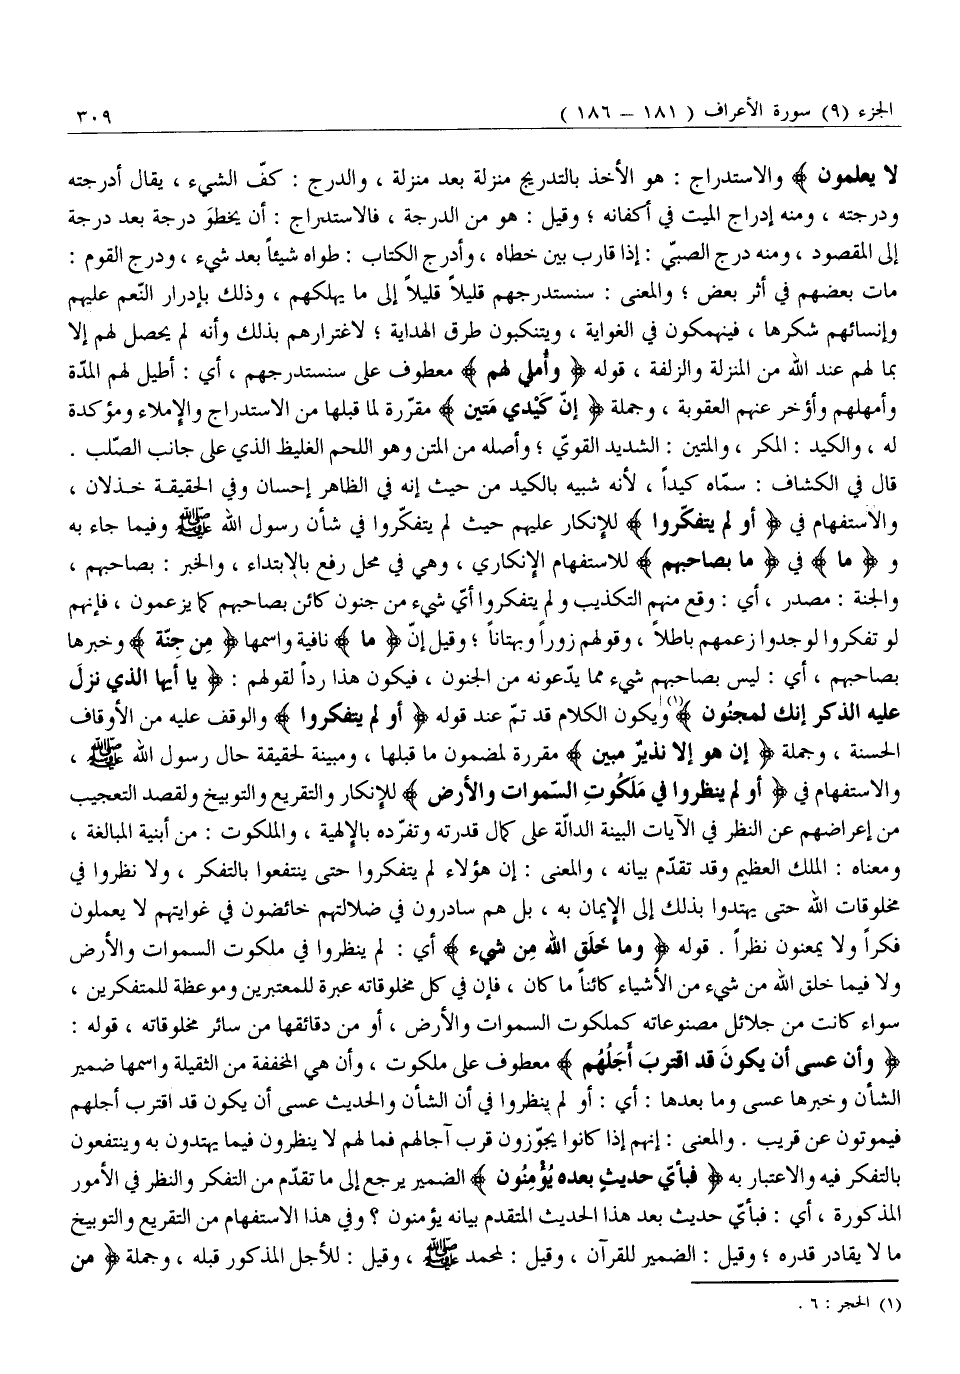 الجزء (٩) سورة الأعراف ( ١٨١ – ١٨٦ )
٣٠٩
لا يعلمون ﴾ والاستدراج : هو الأخذ بالتدريج منزلة بعد منزلة ، والدرج : كفّ الشيء ، يقال أدرجته
ودرجته ، ومنه إدراج الميت في أكفانه ؛ وقيل : هو من الدرجة ، فالاستدراج : أن يخطوَ درجة بعد درجة
إلى المقصود ، ومنه درج الصبيّ : إذا قارب بين خطاه ، وأدرج الكتاب : طواه شيئاً بعد شيء ، ودرج القوم :
مات بعضهم في أثر بعض ؛ والمعنى : سنستدرجهم قليلاً قليلاً إلى ما يهلكهم ، وذلك بإدرار النّعم عليهم
وإنسائهم شكرها ، فينهمكون في الغواية ، ويتنكبون طرق الهداية ؛ لاغترارهم بذلك وأنه لم يحصل لهم إلا
بما لهم عند الله من المنزلة والزلفة ، قوله ﴿ وأُملي لهم ﴾ معطوف على سنستدرجهم ، أي : أطيل لهم المدّة
وأمهلهم وأؤخر عنهم العقوبة ، وجملة ﴿ إنّ كَيْدي مَتين ﴾ مقرّرة لما قبلها من الاستدراج والإملاء ومؤكدة
له ، والكيد : المكر ، والمتين : الشديد القويّ ؛ وأصله من المتن وهو اللحم الغليظ الذي على جانب الصّلب .
قال في الكشاف : سمّاه كيداً ، لأنه شبيه بالكيد من حيث إنه في الظاهر إحسان وفي الحقيقة خذلان ،
والاستفهام في ﴿ أو لم يتفكّروا ﴾ للإنكار عليهم حيث لم يتفكّروا في شأن رسول الله ﷺ وفيما جاء به
و ﴿ ما ﴾ في ﴿ ما بصاحبهم ﴾ للاستفهام الإنكاري ، وهي في محل رفع بالابتداء ، والخبر : بصاحبهم ،
والجنة : مصدر ، أي : وقع منهم التكذيب ولم يتفكروا أيّ شيء من جنون كائن بصاحبهم كما يزعمون ، فإنهم
لو تفكروا لوجدوا زعمهم باطلاً ، وقولهم زوراً وبهتاناً ؛ وقيل إنّ ﴿ ما ﴾ نافية واسمها ﴿ مِن جِنّة ﴾ وخبرها
بصاحبهم ، أي : ليس بصاحبهم شيء مما يدّعونه من الجنون ، فيكون هذا رداً لقولهم : ﴿ يا أَيها الذي نزلَ
عليه الذكر إنك لمجنُون ﴾(١) ويكون الكلام قد تمّ عند قوله ﴿ أو لم يتفكروا ﴾ والوقف عليه من الأوقاف
الحسنة ، وجملة ﴿ إن هو إلا نذيرٌ مبين ﴾ مقررة لمضمون ما قبلها ، ومبينة لحقيقة حال رسول الله ﷺ ،
والاستفهام في ﴿ أو لم ينظروا في مَلَكُوتِ السّموات والأرض ﴾ للإنكار والتقريع والتوبيخ ولقصد التعجيب
من إعراضهم عن النظر في الآيات البينة الدالّة على كمال قدرته وتفرّده بالإلهية ، والملكوت : من أبنية المبالغة ،
ومعناه : الملك العظيم وقد تقدّم بيانه ، والمعنى : إن هؤلاء لم يتفكروا حتى ينتفعوا بالتفكر ، ولا نظروا في
مخلوقات الله حتى يهتدوا بذلك إلى الإيمان به ، بل هم سادرون في ضلالتهم خائضون في غوايتهم لا يعملون
فكراً ولا يمعنون نظراً . قوله ﴿ وما خلَق الله مِن شيء ﴾ أي : لم ينظروا في ملكوت السموات والأرض
ولا فيما خلق الله من شيء من الأشياء كائناً ما كان ، فإن في كل مخلوقاته عبرة للمعتبرين وموعظة للمتفكرين ،
سواء كانت من جلائل مصنوعاته كملكوت السموات والأرض ، أو من دقائقها من سائر مخلوقاته ، قوله :
﴿ وأن عسى أن يكونَ قد اقتربَ أَجَلُهُم ﴾ معطوف على ملكوت ، وأن هي المخففة من الثقيلة واسمها ضمير
الشأن وخبرها عسى وما بعدها : أي : أو لم ينظروا في أن الشأن والحديث عسى أن يكون قد اقترب أجلهم
فيموتون عن قريب . والمعنى : إنهم إذا كانوا يجوّزون قرب آجالهم فما لهم لا ينظرون فيما يهتدون به وينتفعون
بالتفكر فيه والاعتبار به ﴿ فبأيّ حديثٍ بعده يُؤْمِنُون ﴾ الضمير يرجع إلى ما تقدّم من التفكر والنظر في الأمور
المذكورة ، أي : فبأيّ حديث بعد هذا الحديث المتقدم بيانه يؤمنون ؟ وفي هذا الاستفهام من التقريع والتوبيخ
ما لا يقادر قدره ؛ وقيل : الضمير للقرآن ، وقيل : لمحمد ﷺ ، وقيل : للأجل المذكور قبله ، وجملة ﴿ من
(١) الحجر : ٦ .